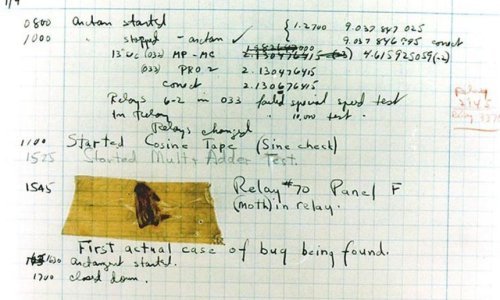 9/9
0800 Antan started
1000 " stopped - antan ✓ { 1.2700 9.037 847 025
9.037 846 995 correct
13"uc (032) MP-MC 2.130476415 (-3) 4.615925059(-2)
(033) PRO 2 2.130476415
correct 2.130676415
Relays 6-2 in 033 failed special speed test
In Relay " 10,000 test.
Relay
2145
Relay 3370
Relays changed
1100 Started Cosine Tape (Sine check)
1525 Started Mult+Adder Test.
1545 Relay #70 Panel F
(moth) in relay.
First actual case of bug being found.
1630 antangent started.
1700 closed down.